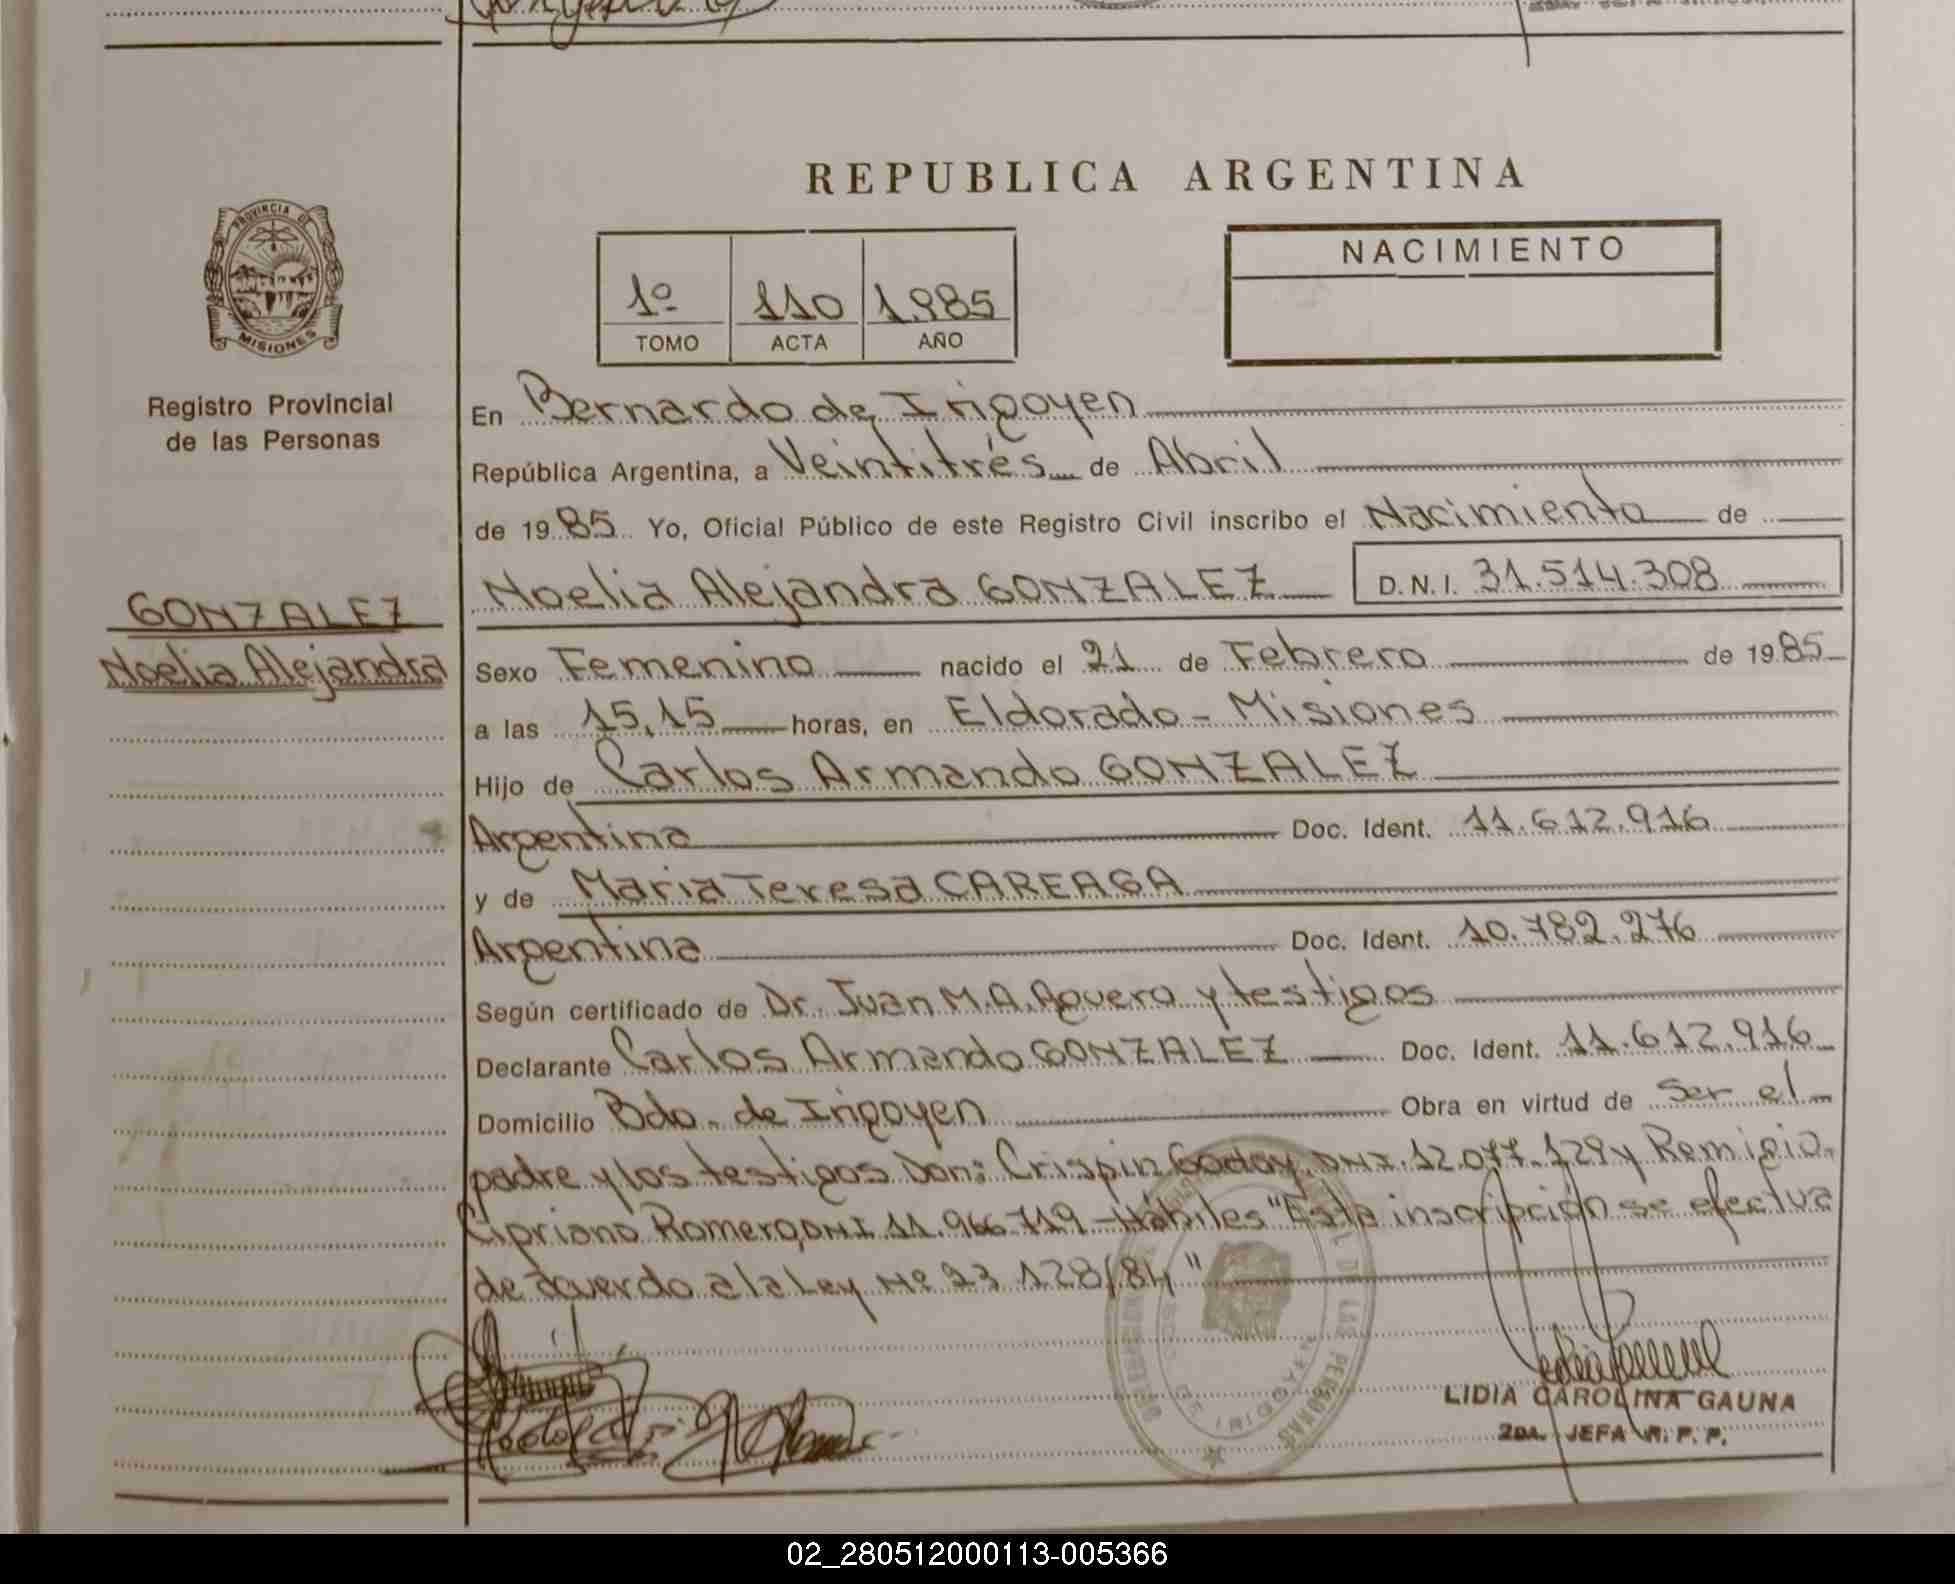 REPUBLICA ARGENTINA
PROVINCIA DE
MISIONES
Registro Provincial
de las Personas
1º 110 1985
TOMO ACTA AÑO
NACIMIENTO
En Bernardo de Irigoyen
República Argentina, a Veintitrés de Abril
de 1985 Yo, Oficial Público de este Registro Civil inscribo el Nacimiento de
Noelia Alejandra GONZALEZ D.N.I. 31.514.308
GONZALEZ
Noelia Alejandra
Sexo Femenino nacido el 21 de Febrero de 1985
a las 15,15 horas, en Eldorado - Misiones
Hijo de Carlos Armando GONZALEZ
Argentina Doc. Ident. 11.612.916
y de Maria Teresa CAREAGA
Argentina Doc. Ident. 10.782.276
Según certificado de Dr. Juan M.A. Aguero y testigos
Declarante Carlos Armando GONZALEZ Doc. Ident. 11.612.916
Domicilio Bdo. de Irigoyen Obra en virtud de ser el
padre y los testigos Don: Crispin Godoy, DNI. 12.077.129 y Remigio
Cipriano Romero, DNI 11.966.719 - Hábiles "Esta inscripción se efectua
de acuerdo a la Ley Nº 23 128/84"
DE LAS PERSONAS
DE IRIGOYEN
LIDIA CAROLINA GAUNA
2DA. JEFA R. P. P.
02_280512000113-005366